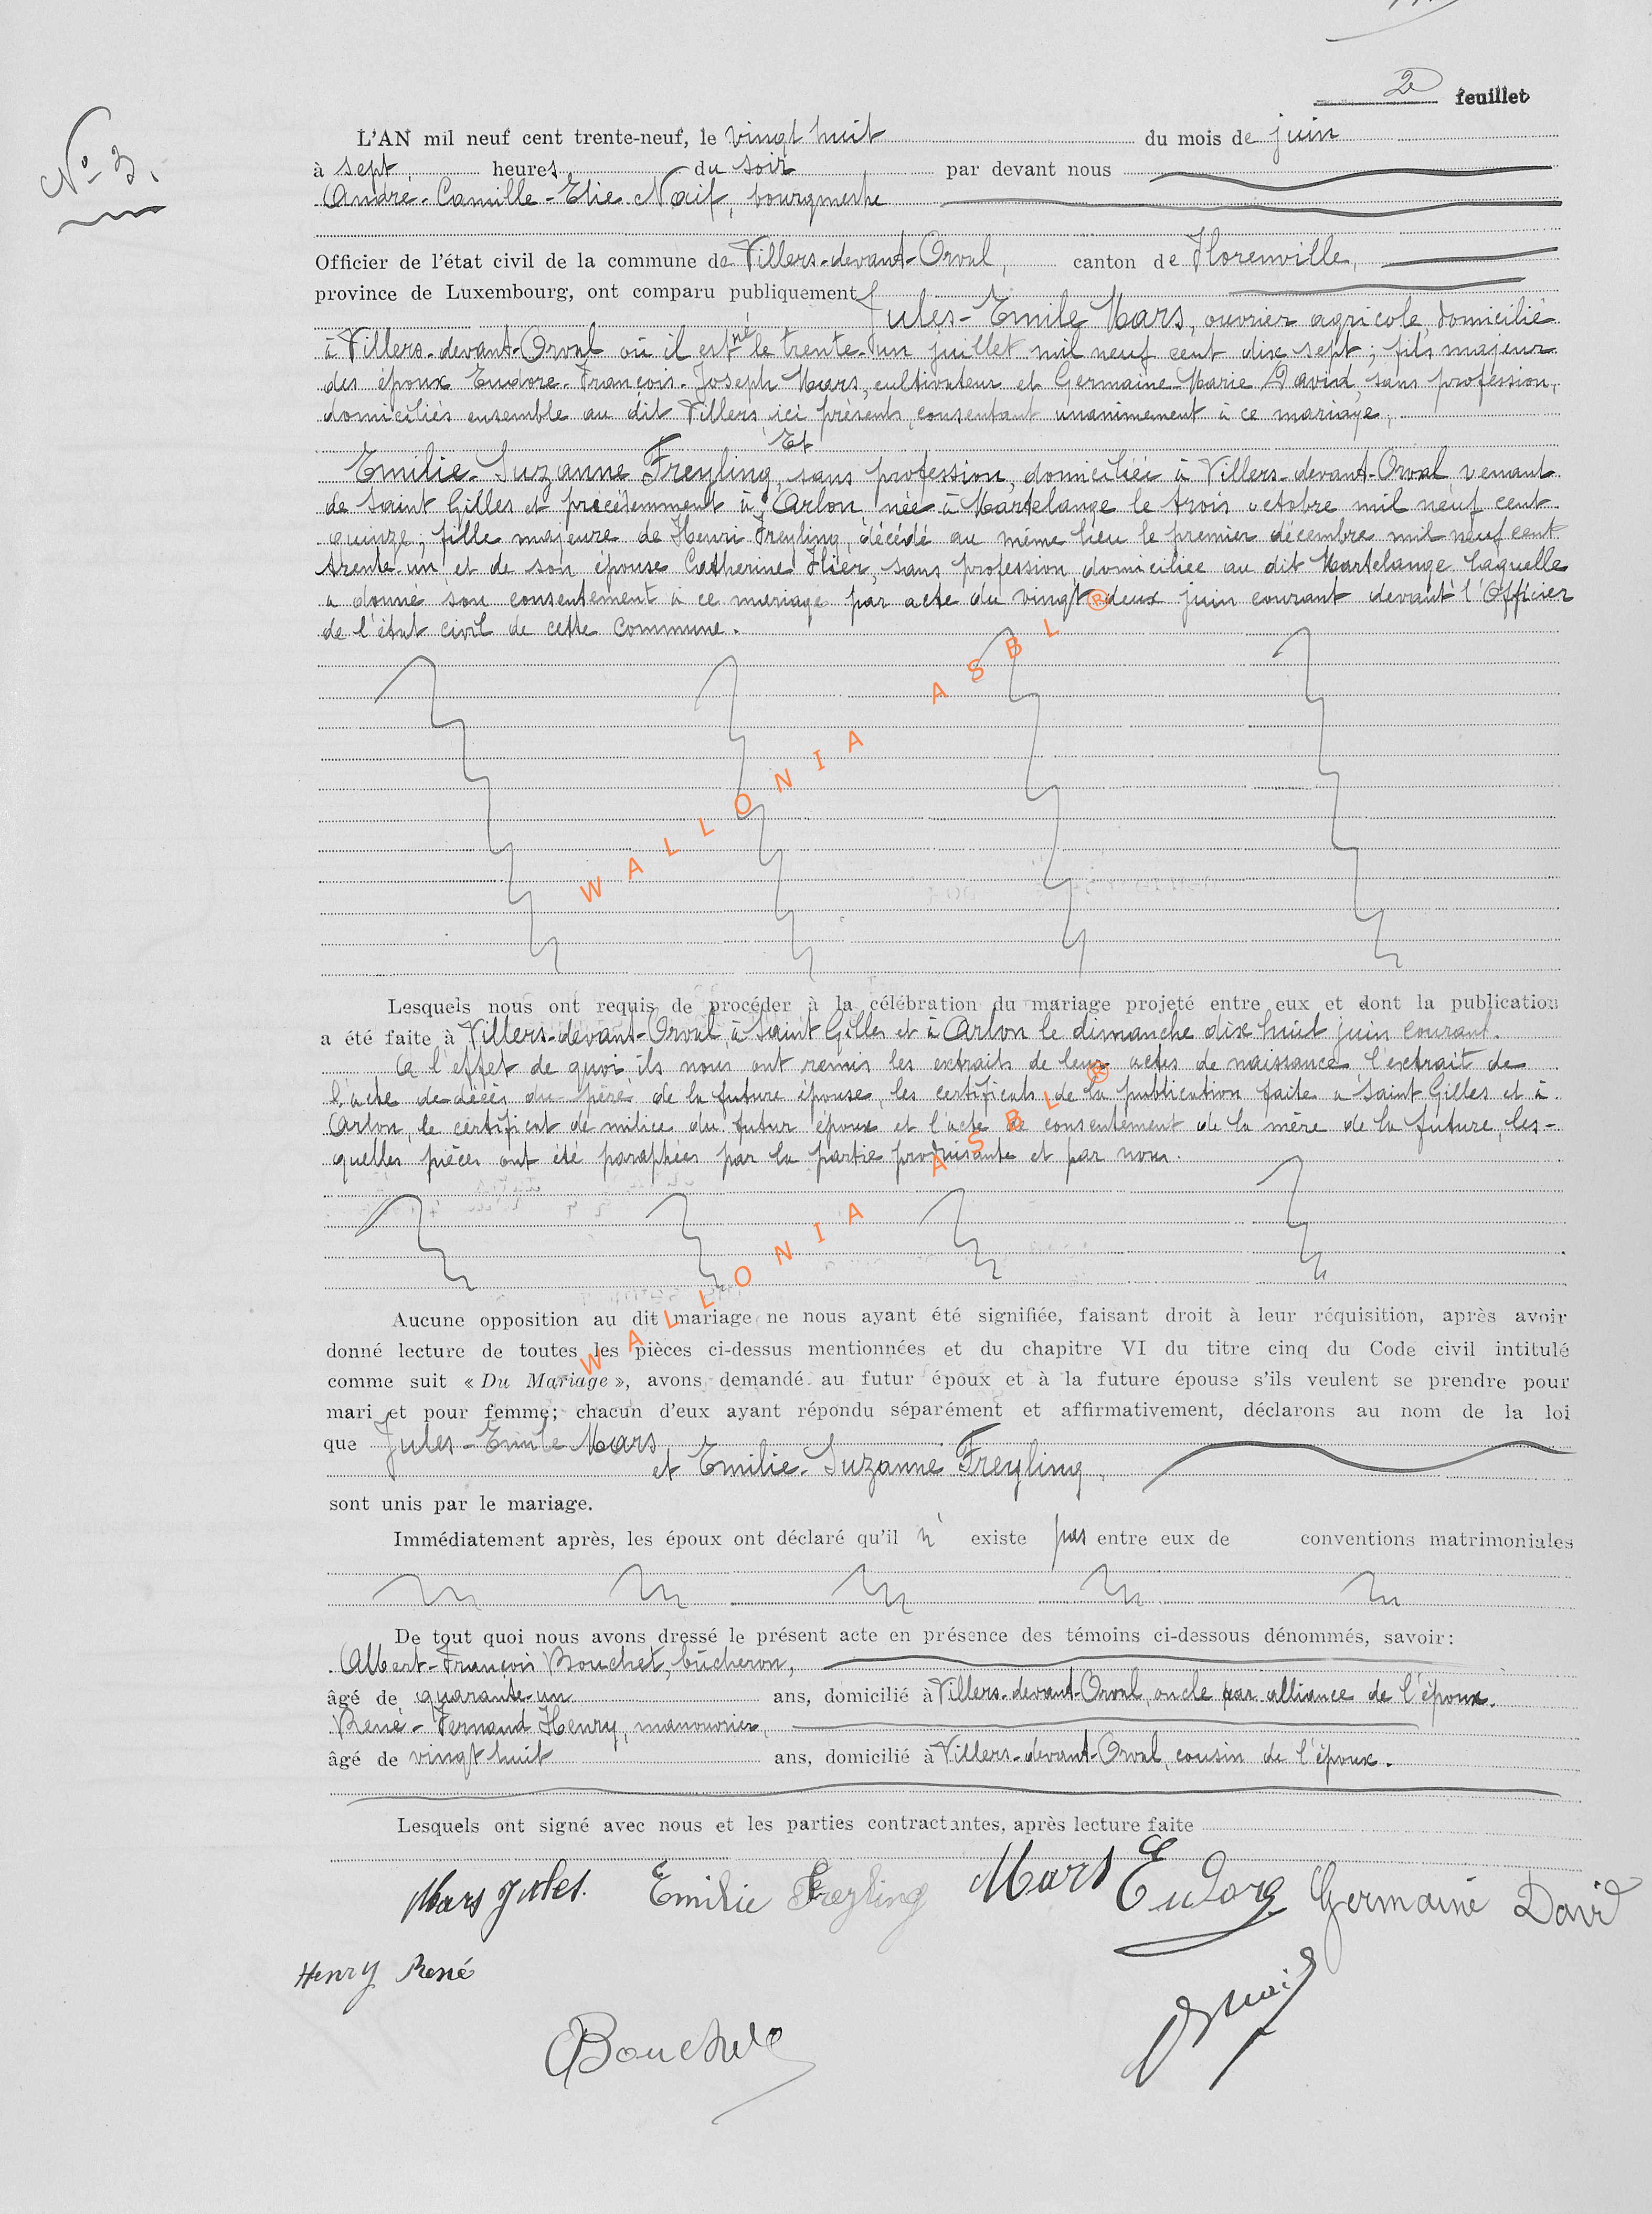 2e feuillet
N° 3.
L'AN mil neuf cent trente-neuf, le vingt huit du mois de juin
à sept, heures du soir par devant nous
André-Camille-Elie Naif, bourgmestre
Officier de l'état civil de la commune de Villers-devant-Orval, canton de Florenville,
province de Luxembourg, ont comparu publiquement
Jules-Emile Mars, ouvrier agricole, domicilié
à Villers-devant-Orval où il est né le trente-un juillet mil neuf cent dix sept; fils majeur
des époux Eudore-François-Joseph Mars, cultivateur et Germaine-Marie David, sans profession,
domiciliés ensemble au dit Villers, ici présents, consentant unanimement à ce mariage,
Et
Emilie-Suzanne Freyling, sans profession, domiciliée à Villers-devant-Orval venant
de Saint Gilles et précédemment à Arlon, née à Martelange le trois octobre mil neuf cent
quinze; fille majeure de Henri Freyling, décédé au même lieu le premier décembre mil neuf cent
trente-un et de son épouse Catherine Flier, sans profession, domiciliée au dit Martelange laquelle
a donné son consentement à ce mariage par acte du vingt-deux juin courant devant l'Officier
de l'état civil de cette commune.
WALLONIA ASBL ®
Lesquels nous ont requis de procéder à la célébration du mariage projeté entre eux et dont la publication
a été faite à Villers-devant-Orval, à Saint Gilles et à Arlon le dimanche dix huit juin courant.
A l'effet de quoi ils nous ont remis les extraits de leur actes de naissance l'extrait de
l'acte de décès du père de la future épouse, les certificats de la publication faite à Saint Gilles et à
Arlon, le certificat de milice du futur époux et l'acte de consentement de la mère de la future, les-
quelles pièces ont été paraphées par la partie produisante et par nous.
WALLONIA ASBL ®
Aucune opposition au dit mariage ne nous ayant été signifiée, faisant droit à leur réquisition, après avoir
donné lecture de toutes les pièces ci-dessus mentionnées et du chapitre VI du titre cinq du Code civil intitulé
comme suit « Du Mariage », avons demandé au futur époux et à la future épouse s'ils veulent se prendre pour
mari et pour femme; chacun d'eux ayant répondu séparément et affirmativement, déclarons au nom de la loi
que Jules-Emile Mars
et Emilie-Suzanne Freyling,
sont unis par le mariage.
Immédiatement après, les époux ont déclaré qu'il n' existe pas entre eux de conventions matrimoniales
De tout quoi nous avons dressé le présent acte en présence des témoins ci-dessous dénommés, savoir:
Albert-François Bouchet, bûcheron,
âgé de quarante-un ans, domicilié à Villers-devant-Orval, oncle par alliance de l'époux.
René-Fernand Henry, manouvrier,
âgé de vingt huit ans, domicilié à Villers-devant-Orval, cousin de l'époux.
Lesquels ont signé avec nous et les parties contractantes, après lecture faite
Mars Jules. Emilie Freyling Mars Eudore Germaine David
Henry René
A Bouchet